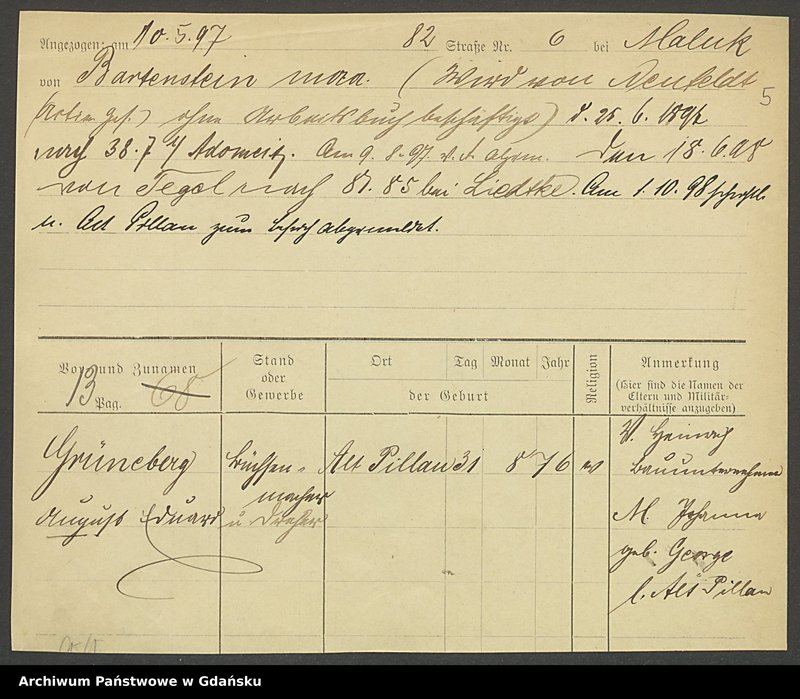 Angezogen: am 10.5.97 82 Straße Nr. 6 bei Maluk
von Bartenstein (Wird von Neufeldt 5
ohne Arbeitsbuch beschäftigt) d. 25. 6. 1897
nach 38.7 b/ Adomeit. Am 9. 8. 97 Den 18.6.98
von Tegel nach 87. 85 bei Liedtke. Am 1.10.98
n. Alt Pillau zum abgemeldet.
Vor- und Zunamen
13 68
Pag.
Stand
oder
Gewerbe
Ort Tag Monat Jahr
der Geburt
Religion
Anmerkung
(Hier sind die Namen der
Eltern und Militär-
verhältnisse anzugeben)
Grüneberg
August Eduard
Büchsen-
macher
u Dreher
Alt Pillau 31 8 76 ev
V. Heinrich
Bauunternehmer
M. Johanna
geb. George
Alt Pillau
Archiwum Państwowe w Gdańsku